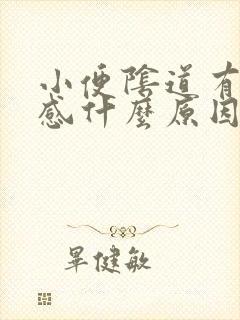 小便陰道有
感什麼原因
畢健敏